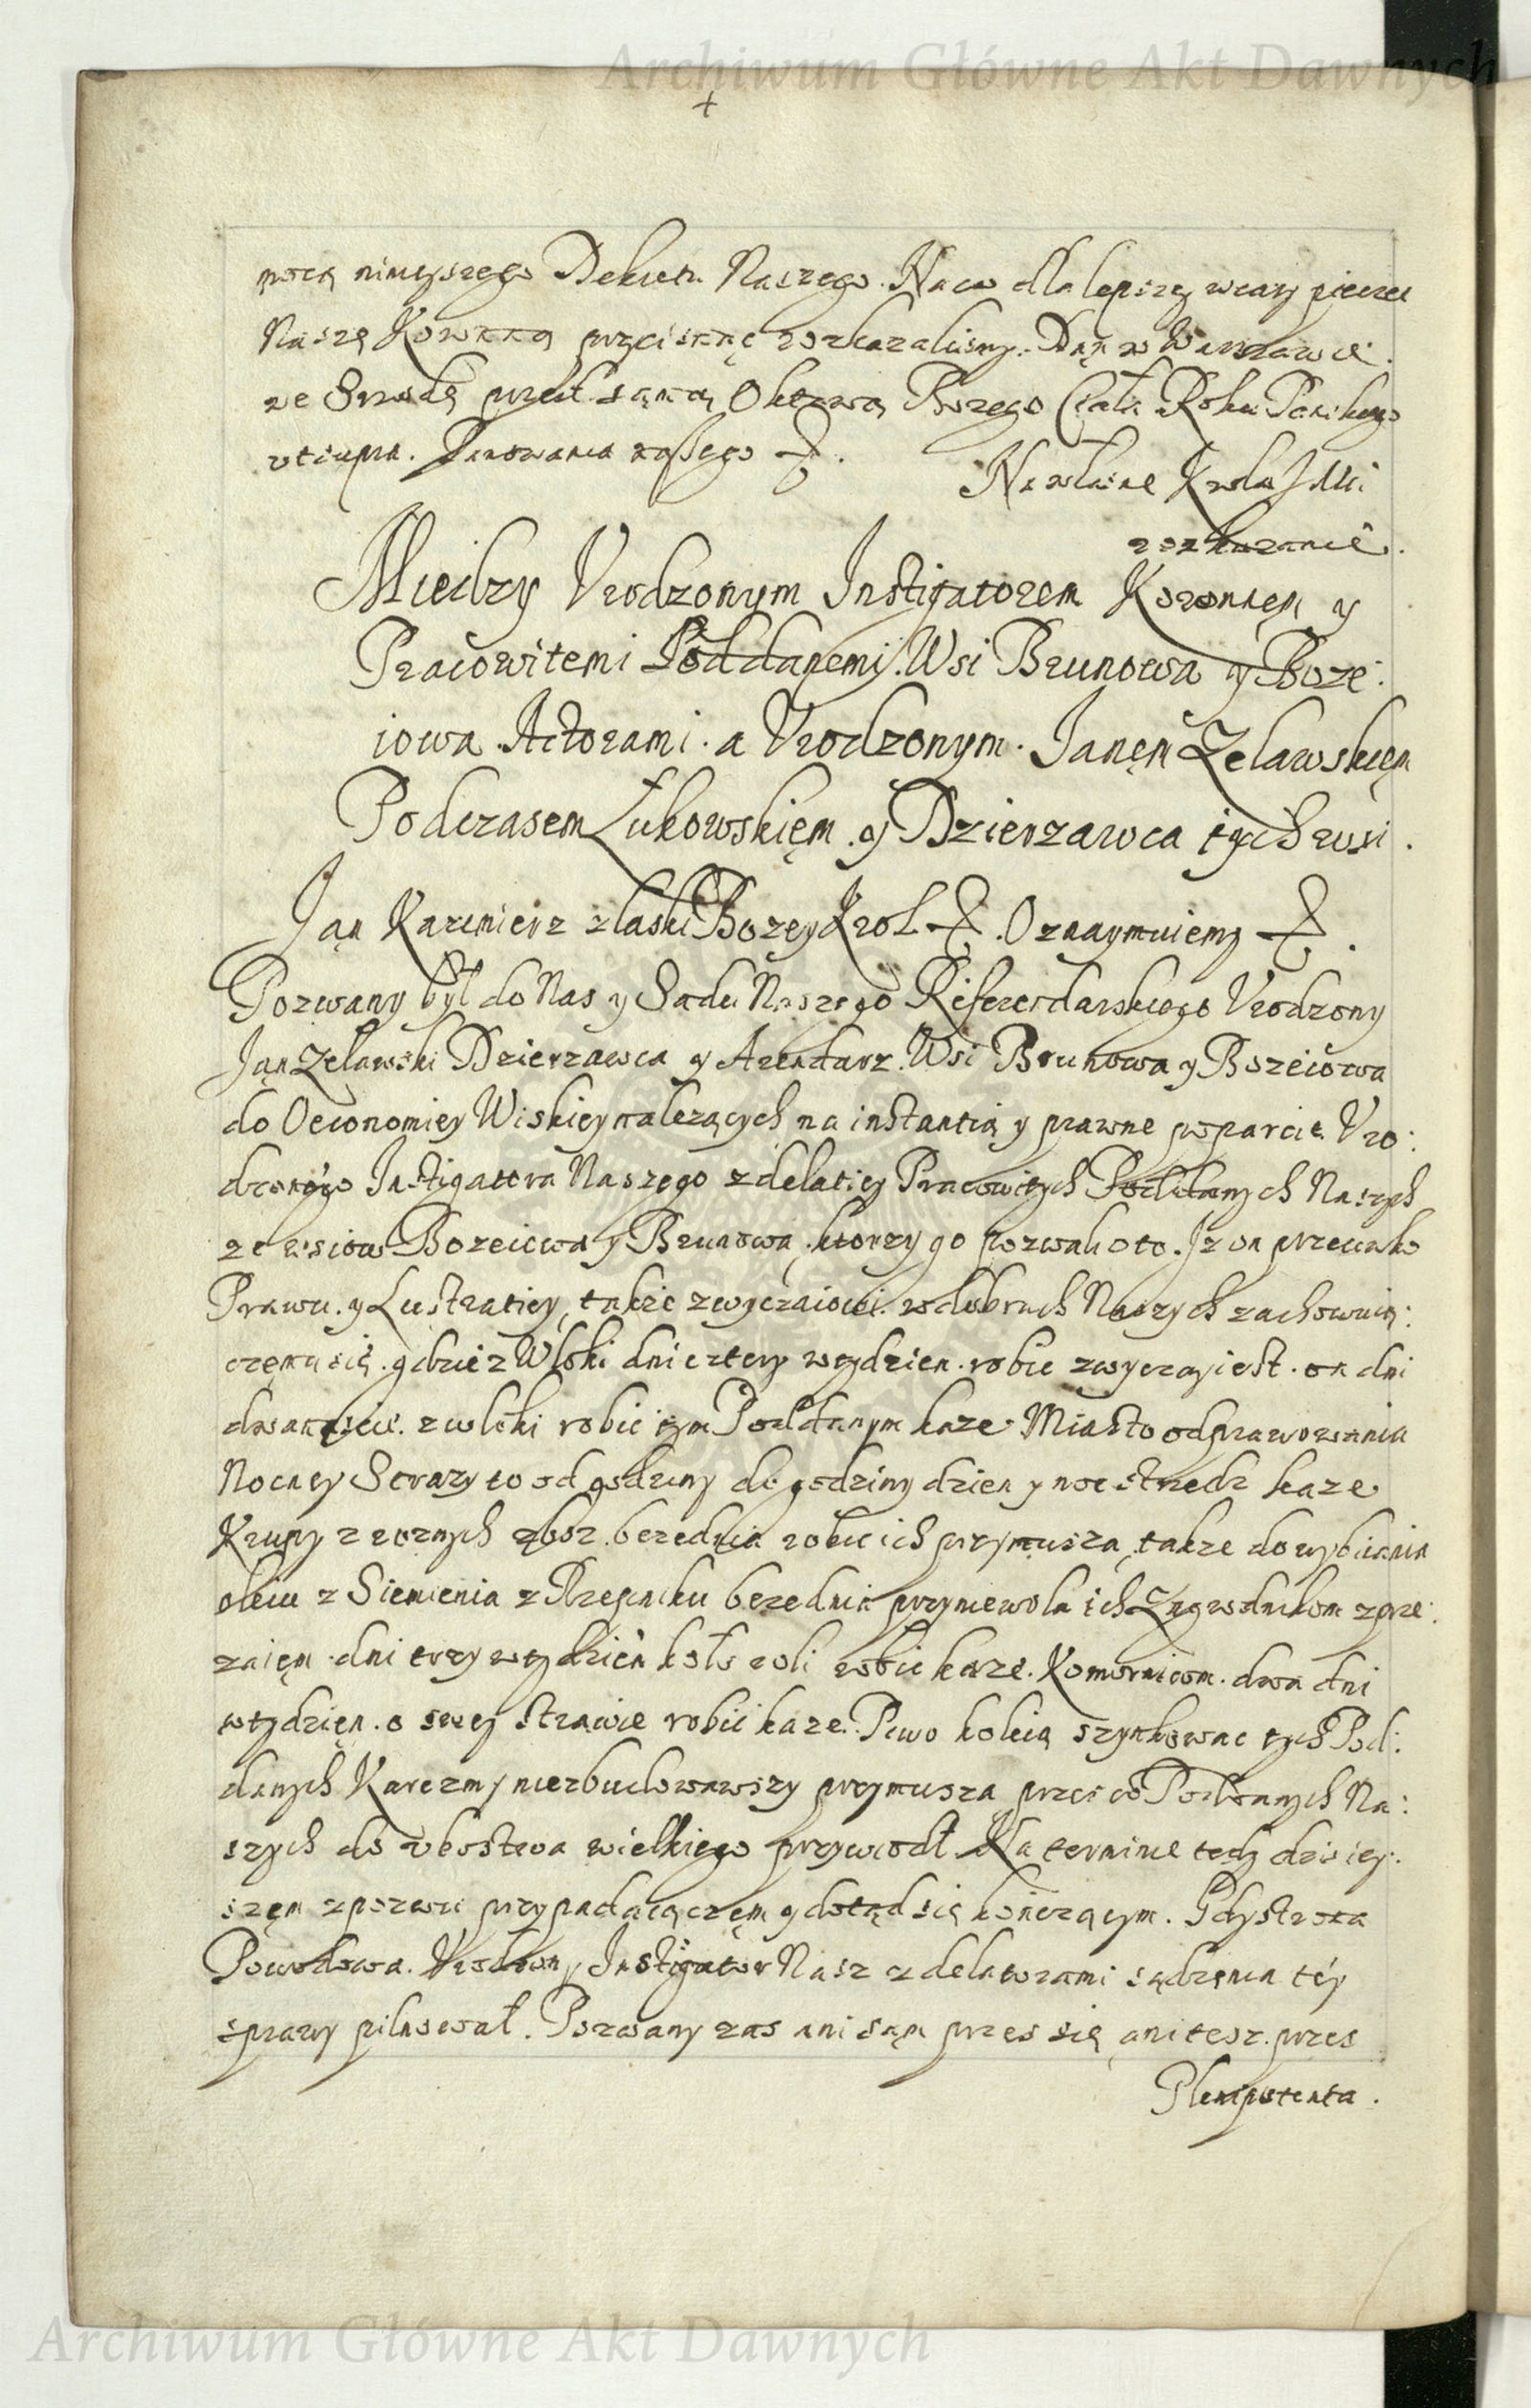 Archiwum Główne Akt Dawnych
mocą ninieyszego Dekretu Naszego. Na co dla lepszey wiary pieczec
Naszą Koronną przycisnąc roskazalismy. Dan w Warszawie.
we Srzodę przed samą Oktawą Bozego Ciała Roku Panskiego
vt supra. Panowania naszego &.
Na własne Krola J Mci
roskazanie.
Miedzy Vrodzonym Instigatorem Koronnęm y
Pracowitemi Poddanemi. Wsi Brunowa y Boze:
iowa. Actorami. a Vrodzonym. Janęm Zelawskięm
Podczasem Łukowskięm. y Dzierzawca tych wsi.
Jan Kazimierz z laski Bozey Krol &. Oznaymuiemy &.
Pozwany był do Nas y Sadu Naszego Referendarskiego Vrodzony
Jan Zelawski Dzierzawca y Arendarz. Wsi Brunowa y Bozeiowa
do Oeconomiey Wiskiey nalezących na instantią y prawne poparcie Vro:
dzonego Instigatora Naszego z delatiey Pracowitych Poddanych Naszych
ze wsiow Bozeiowa y Brunowa, ktorzy go pozwali oto. Iz on przeciwko
Prawu. y Lustratiey, takze zwyczaiowi. w dobrach Naszych zachowuią:
czemu się. gdzie z Włoki dni cztery w tydzien. robic zwyczay iest. on dni
dwanascie. z włoki robic tym Poddanym kaze. Miasto odprawowania
Nocney Strazy to od godziny do godziny dzien y noc strzedz kaze
Krupy z roznych zboz. bez ednia robic ich przymusza, takze do wybiiania
oleiu z Siemienia z Rzepniku bez ednia przyniewola ich Zagrodnikom z prze:
zaięm. dni trzy w tydzien koło roli robic kaze. Komornicom. dwa dni
w tydzięn. o swey strawie robic kaze. Piwo koleią szynkowac tych Pod:
danych Karczmy niezbudowawszy przymusza przes co Poddanych Na:
szych do vbostwa wielkiego przywiodł. Na terminie tedy dzisiey:
szęm z pozwu przypadaiączęm y dotąd się kończącym. Gdy strona
Powodowa. Vrodzony Instigator Nasz z delatorami sądzenia tey
sprawy pilnował. Pozwany zas ani sąm przes się, ani tesz. przes
Plenipotenta.
Archiwum Główne Akt Dawnych